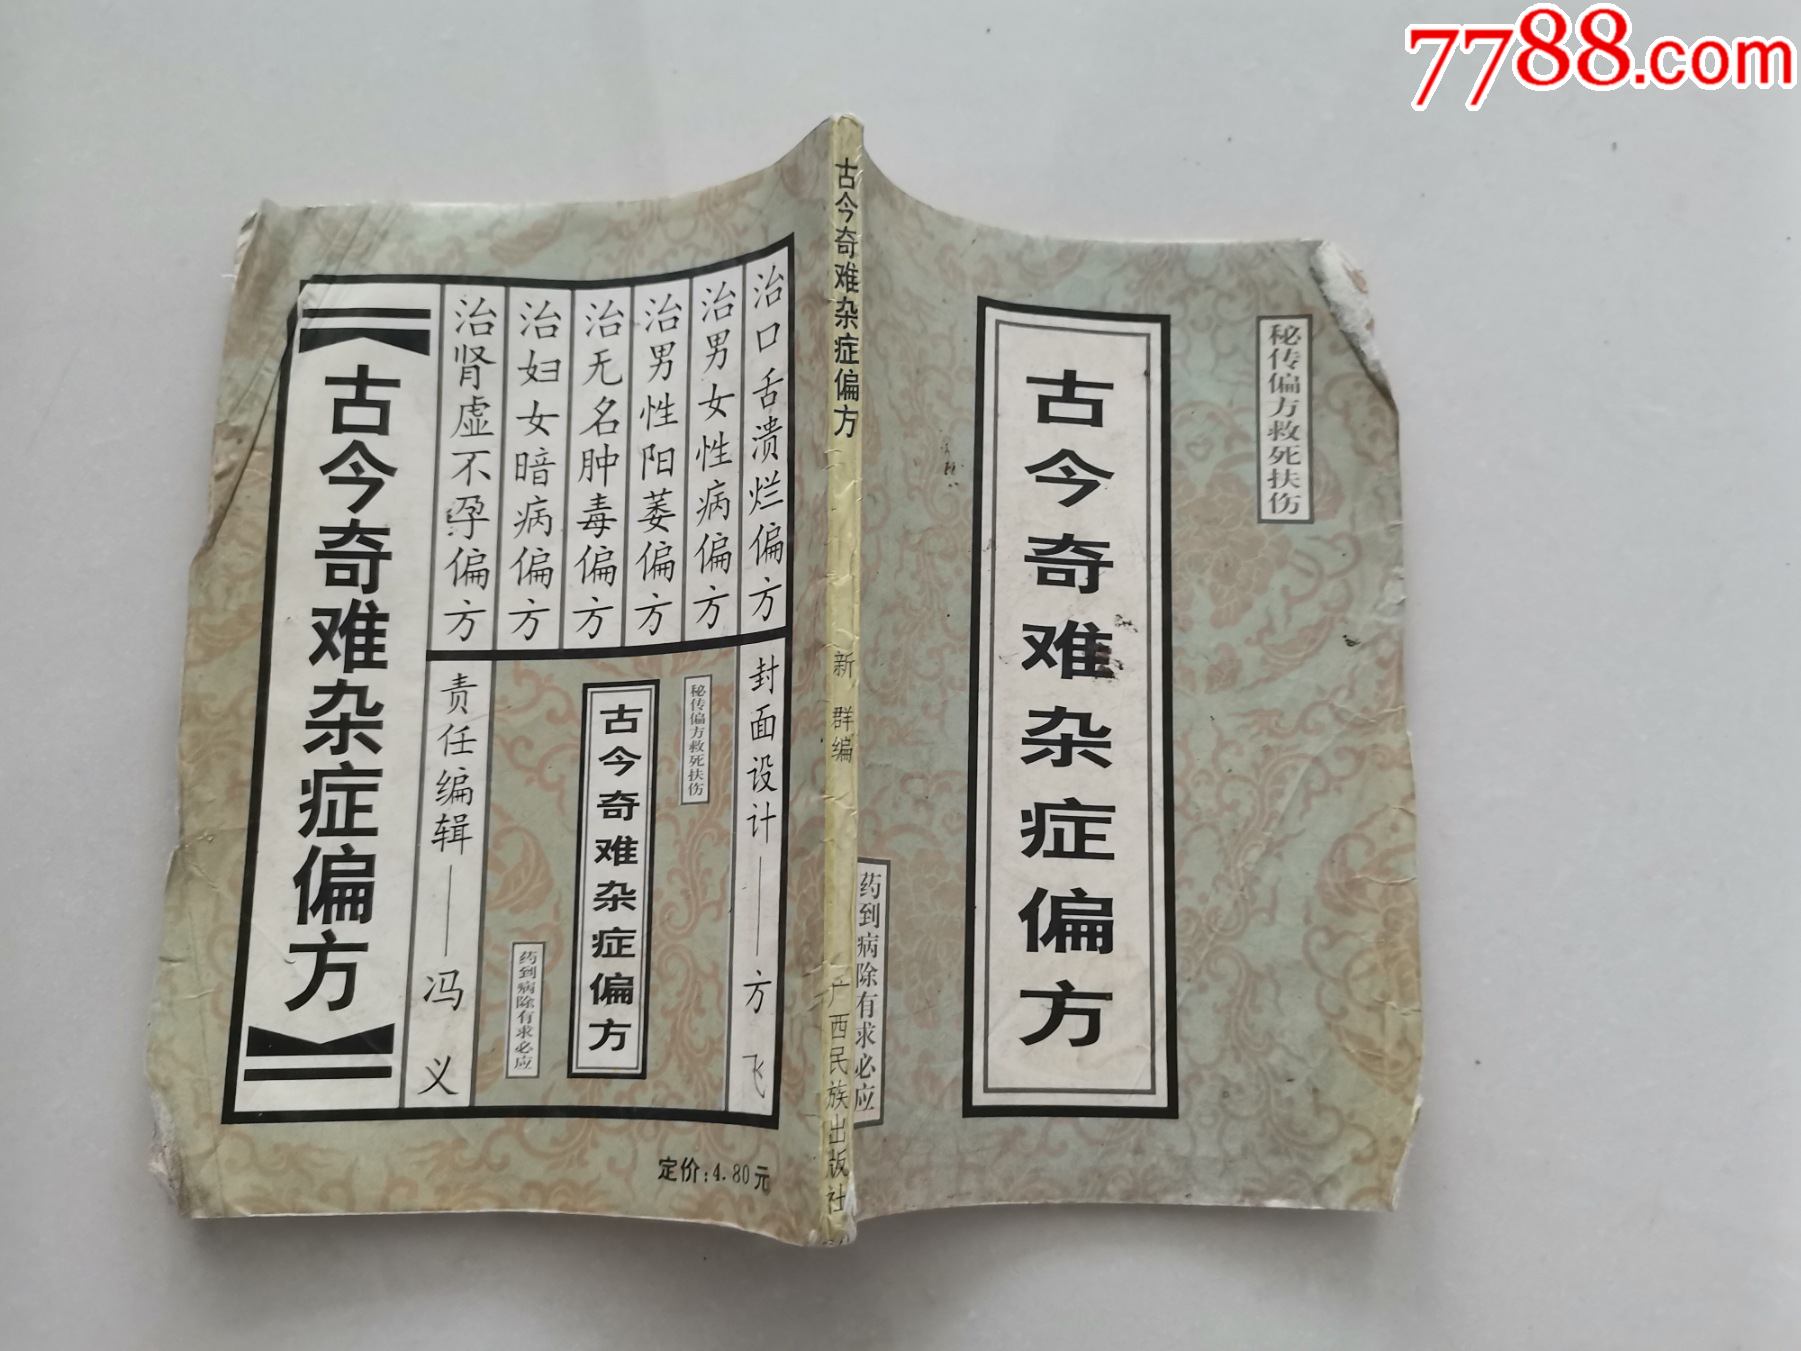 7788.com
秘传偏方救死扶伤
古今奇难杂症偏方
药到病除有求必应
古今奇难杂症偏方
新群编
广西民族出版社
治口舌溃烂偏方
治男女性病偏方
治男性阳萎偏方
治无名肿毒偏方
治妇女暗病偏方
治肾虚不孕偏方
古今奇难杂症偏方
封面设计——方飞
秘传偏方救死扶伤
古今奇难杂症偏方
药到病除有求必应
责任编辑——冯义
定价:4.80元